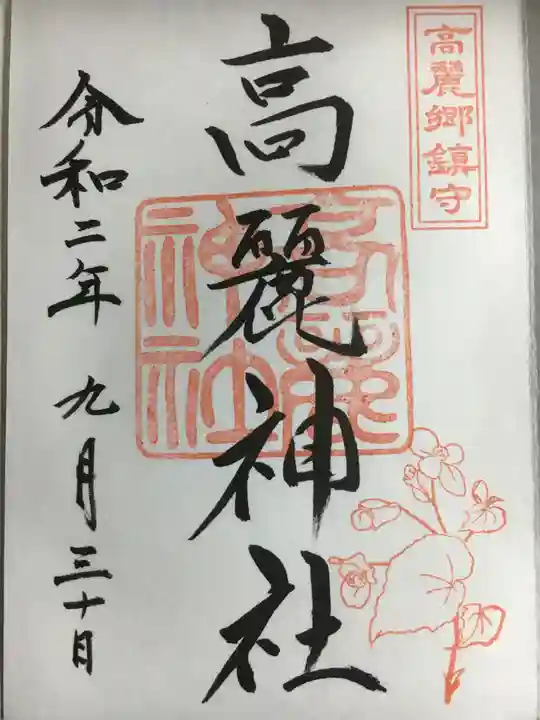 高麗郷鎮守
高麗神社
高麗神社
令和二年 九月三十日